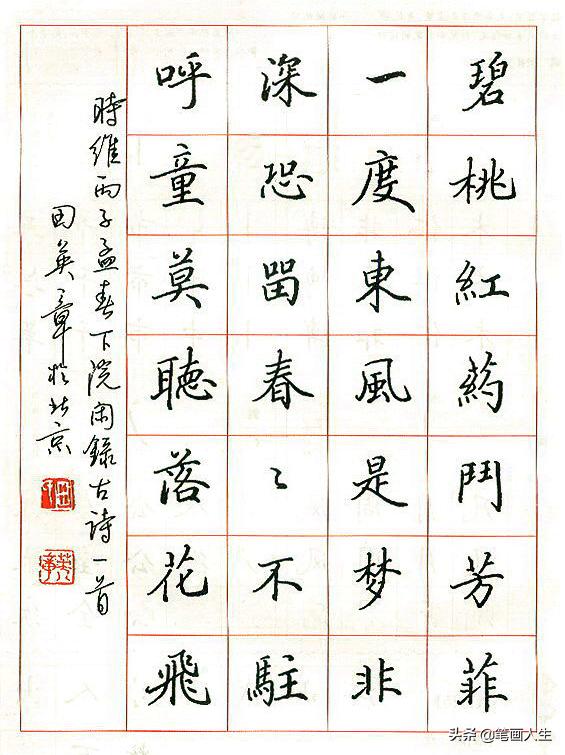 碧桃紅葯鬥芳菲
一度東風是梦非
深恐留春〻不駐
呼童莫聽落花飛
時維丙子孟春下院闲錄古詩一首
田英章於北京
英章
头条 @笔画人生